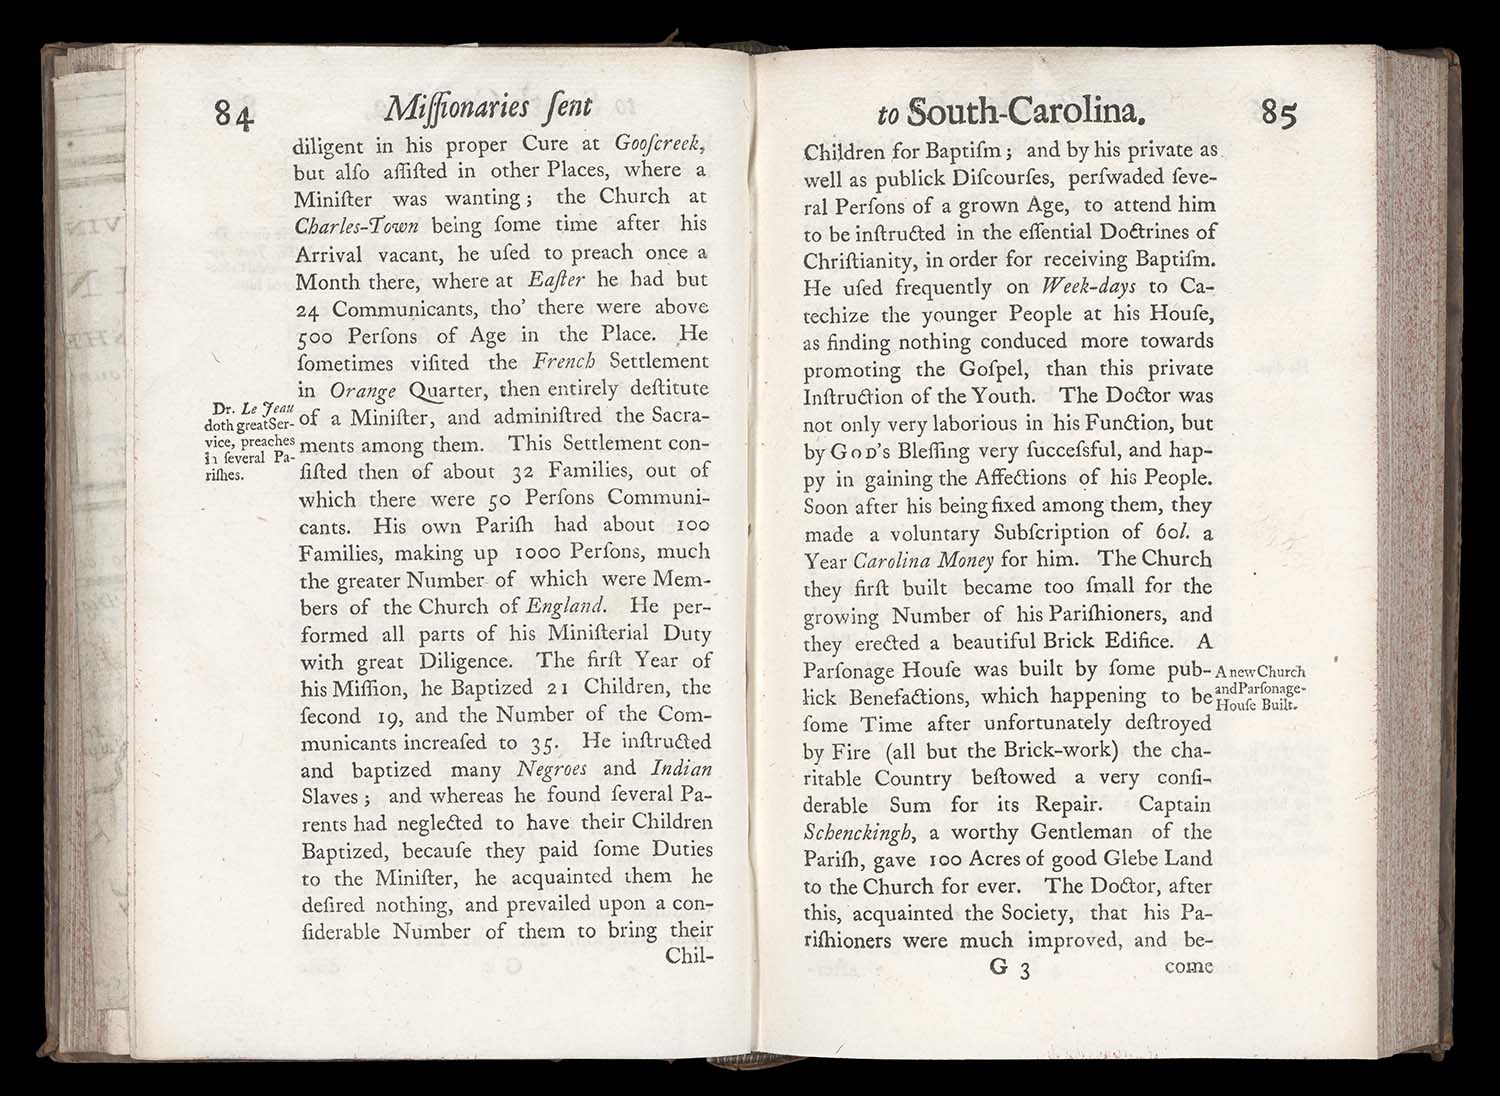 84
Miſſionaries ſent
diligent in his proper Cure at Gooſcreek,
but alſo aſſiſted in other Places, where a
Miniſter was wanting; the Church at
Charles-Town being ſome time after his
Arrival vacant, he uſed to preach once a
Month there, where at Eaſter he had but
24 Communicants, tho' there were above
500 Perſons of Age in the Place. He
ſometimes viſited the French Settlement
in Orange Quarter, then entirely deſtitute
of a Miniſter, and adminiſtred the Sacra-
ments among them. This Settlement con-
ſiſted then of about 32 Families, out of
which there were 50 Perſons Communi-
cants. His own Pariſh had about 100
Families, making up 1000 Perſons, much
the greater Number of which were Mem-
bers of the Church of England. He per-
formed all parts of his Miniſterial Duty
with great Diligence. The firſt Year of
his Miſſion, he Baptized 21 Children, the
ſecond 19, and the Number of the Com-
municants increaſed to 35. He inſtructed
and baptized many Negroes and Indian
Slaves; and whereas he found ſeveral Pa-
rents had neglected to have their Children
Baptized, becauſe they paid ſome Duties
to the Miniſter, he acquainted them he
deſired nothing, and prevailed upon a con-
ſiderable Number of them to bring their
Chil-
Dr. Le Jeau
doth great Ser-
vice, preaches
in ſeveral Pa-
riſhes.
to South-Carolina.
85
Children for Baptiſm; and by his private as
well as publick Diſcourſes, perſwaded ſeve-
ral Perſons of a grown Age, to attend him
to be inſtructed in the eſſential Doctrines of
Chriſtianity, in order for receiving Baptiſm.
He uſed frequently on Week-days to Ca-
techize the younger People at his Houſe,
as finding nothing conduced more towards
promoting the Goſpel, than this private
Inſtruction of the Youth. The Doctor was
not only very laborious in his Function, but
by GOD's Bleſſing very ſucceſsful, and hap-
py in gaining the Affections of his People.
Soon after his being fixed among them, they
made a voluntary Subſcription of 60l. a
Year Carolina Money for him. The Church
they firſt built became too ſmall for the
growing Number of his Pariſhioners, and
they erected a beautiful Brick Edifice. A
Parſonage Houſe was built by ſome pub-
lick Benefactions, which happening to be
ſome Time after unfortunately deſtroyed
by Fire (all but the Brick-work) the cha-
ritable Country beſtowed a very conſi-
derable Sum for its Repair. Captain
Schenckingh, a worthy Gentleman of the
Pariſh, gave 100 Acres of good Glebe Land
to the Church for ever. The Doctor, after
this, acquainted the Society, that his Pa-
riſhioners were much improved, and be-
G 3
come
A new Church
and Parſonage-
Houſe Built.